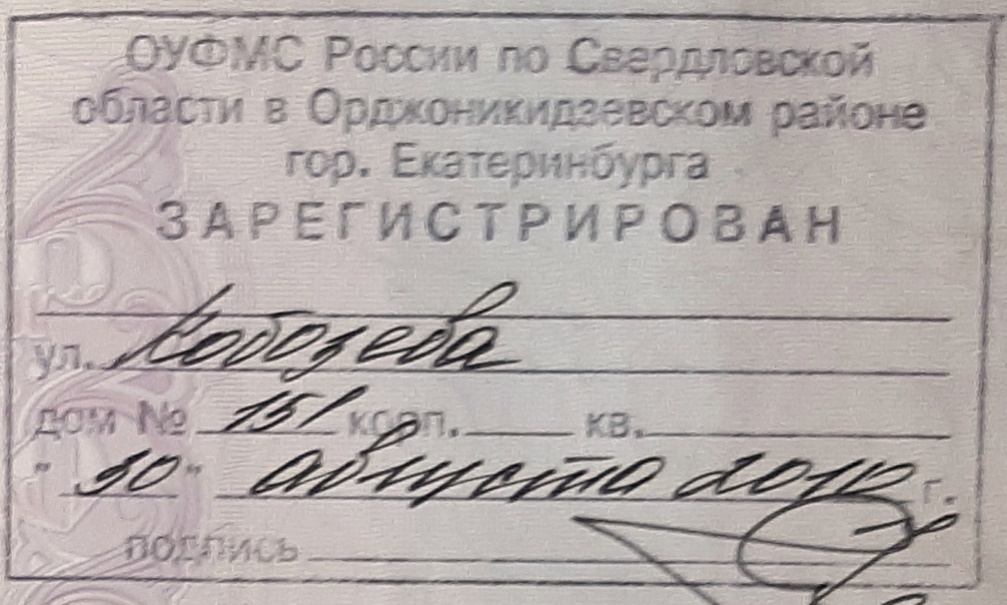 ОУФМС России по Свердловской
области в Орджоникидзевском районе
гор. Екатеринбурга
ЗАРЕГИСТРИРОВАН
ул. Кобозева
дом № 151 корп. кв.
"30" августа 2010 г.
подпись